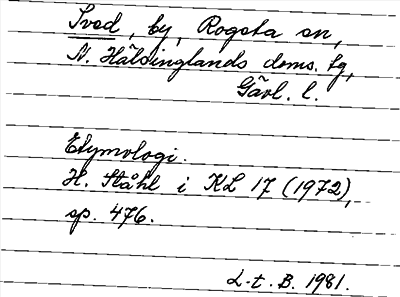 Sved, by, Rogsta sn,
N. Hälsinglands doms. tg,
Gävl. l.
Etymologi.
H. Ståhl i KL 17 (1972),
sp. 476.
L-t. B. 1981.